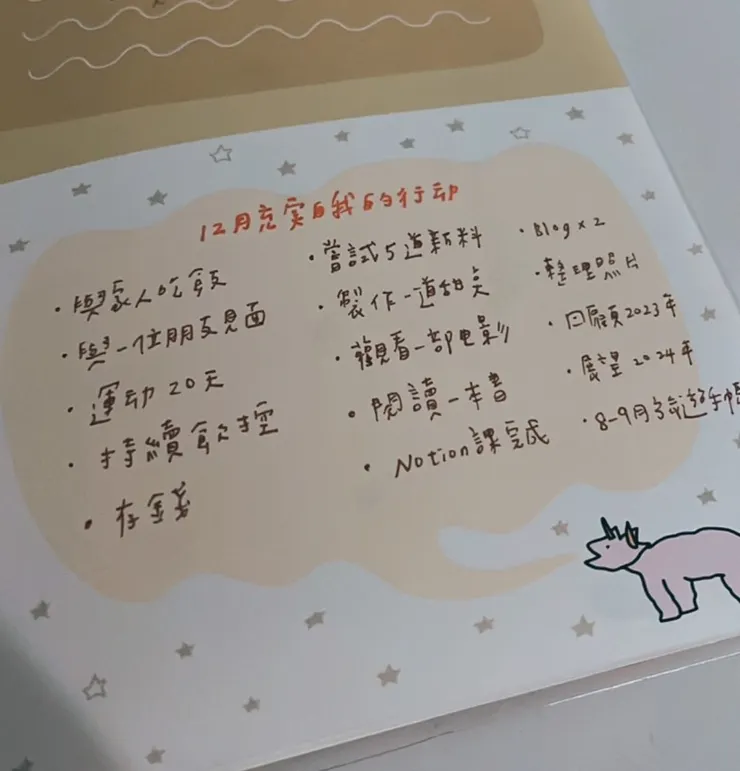 12月充实自我的行动
• 與家人吃飯
• 與一位朋友見面
• 運动 20天
• 持續飲控
• 存金錢
• 嘗試5道新料
• 製作一道甜点
• 觀看一部电影
• 閱讀一本書
• Notion課完成
• Blog x 2
• 整理照片
• 回顧2023年
• 展望 2024年
• 8-9月旅遊手帳